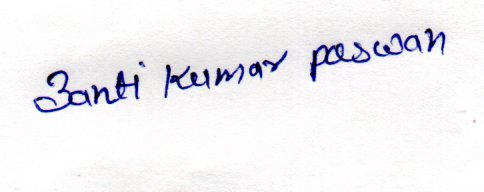 Banti Kumar paswan